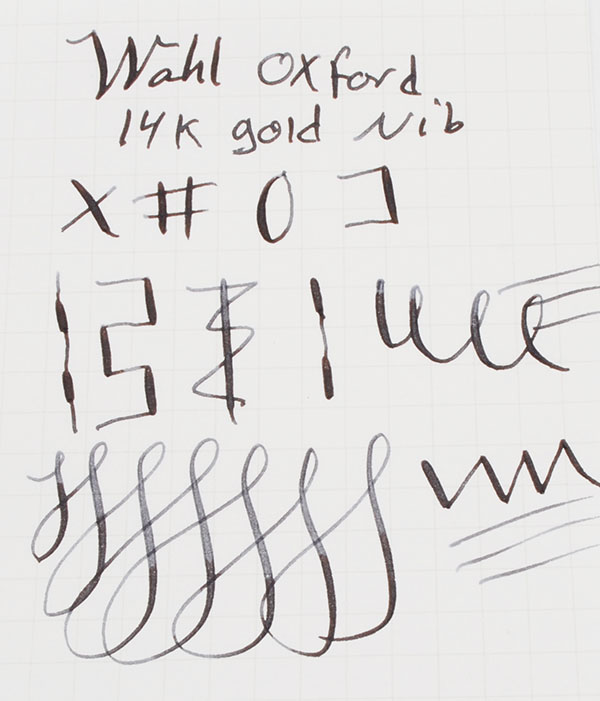 Wahl Oxford
14K gold Nib
X # O